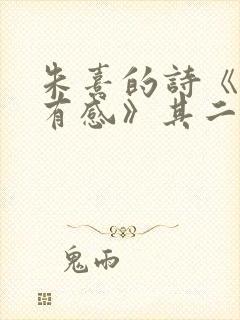 朱熹的詩《
有感》其二
鬼雨